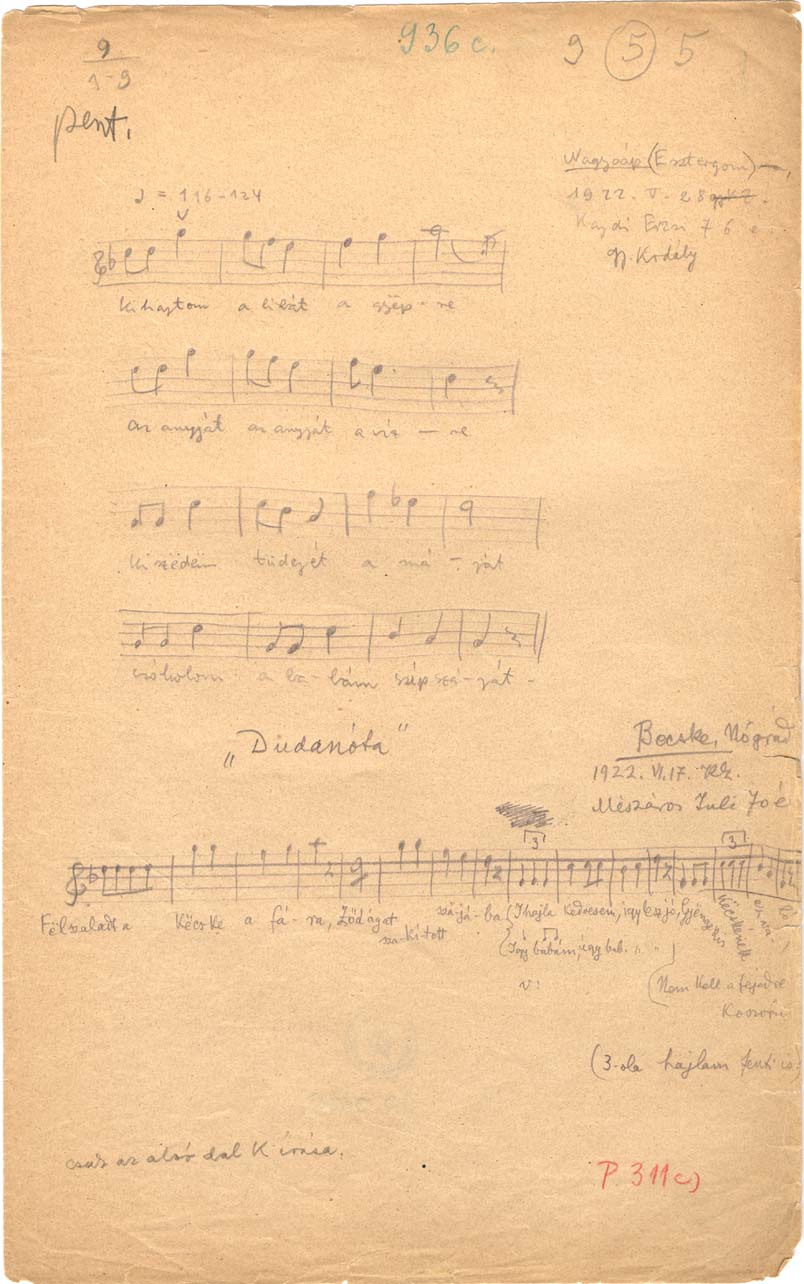 936c.
9 5 5
9
1-9
pent.
Nagyoáp (Esztergom)
1922. V. 28
Kajdi Erzsi 76 é.
gy. Kodály
♩ = 116-124
kihajtom a libát a gyëp-re
az anyját az anyját a viz-re
kiszëdëm tüdejét a má-ját
csókolom a ba-bám szép szá-ját
„Dudanóta"
Becske, Nógrád
1922. VI. 17. KZ.
Mészáros Juli 70 é
3 3
Félszaladt a Këcske a fá-ra, Ződágat sza-kí-tott szá-já-ba (Ihajla Kedvesem, így lesz jó,
Këcskének
(Így babám, így bab. „ „
v:
(Nem Kell a fejedre
Koszorú
(3-ola hajlam fenti is)
csak az alsó dal K írása.
P. 311c)